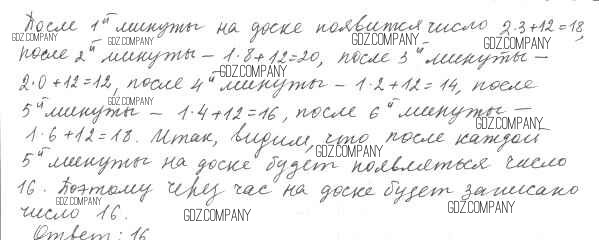 После 1й минуты на доске появится число 2·3+12=18,
GDZ.COMPANY GDZ.COMPANY GDZ.COMPANY GDZ.COMPANY
после 2й минуты – 1·8+12=20, после 3й минуты –
GDZ.COMPANY
2·0+12=12, после 4й минуты – 1·2+12=14, после
GDZ.COMPANY
5й минуты – 1·4+12=16, после 6й минуты –
GDZ.COMPANY
1·6+12=18. Итак, видим, что после каждой
GDZ.COMPANY
5й минуты на доске будет появляться число
16. Поэтому через час на доске будет записано
число 16.
GDZ.COMPANY GDZ.COMPANY
Ответ: 16